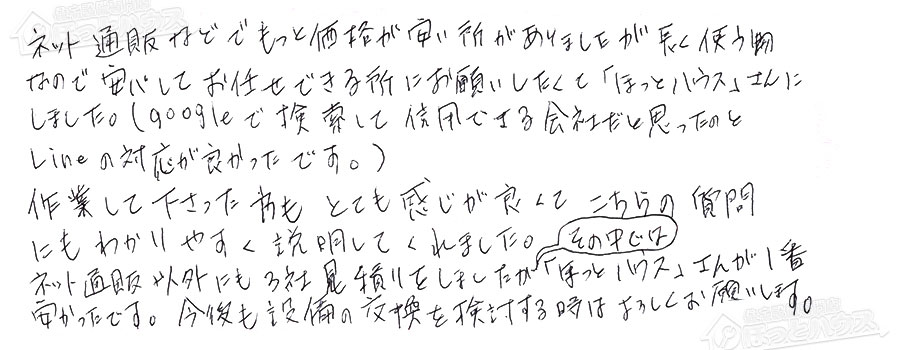 ネット通販などでもっと価格が安い所がありましたが長く使う物
なので安心してお任せできる所にお願いしたくて「ほっとハウス」さんに
しました。(googleで検索して信用できる会社だと思ったのと
Lineの対応が良かったです。)
作業して下さった方もとても感じが良くてこちらの質問
にもわかりやすく説明してくれました。
ネット通販以外にも3社見積りをしましたがその中では「ほっとハウス」さんが1番
安かったです。今後も設備の交換を検討する時はよろしくお願いします。
ほっとハウス